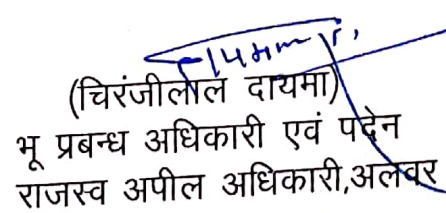 (चिरंजीलाल दायमा)
भू प्रबन्ध अधिकारी एवं पदेन
राजस्व अपील अधिकारी,अलवर